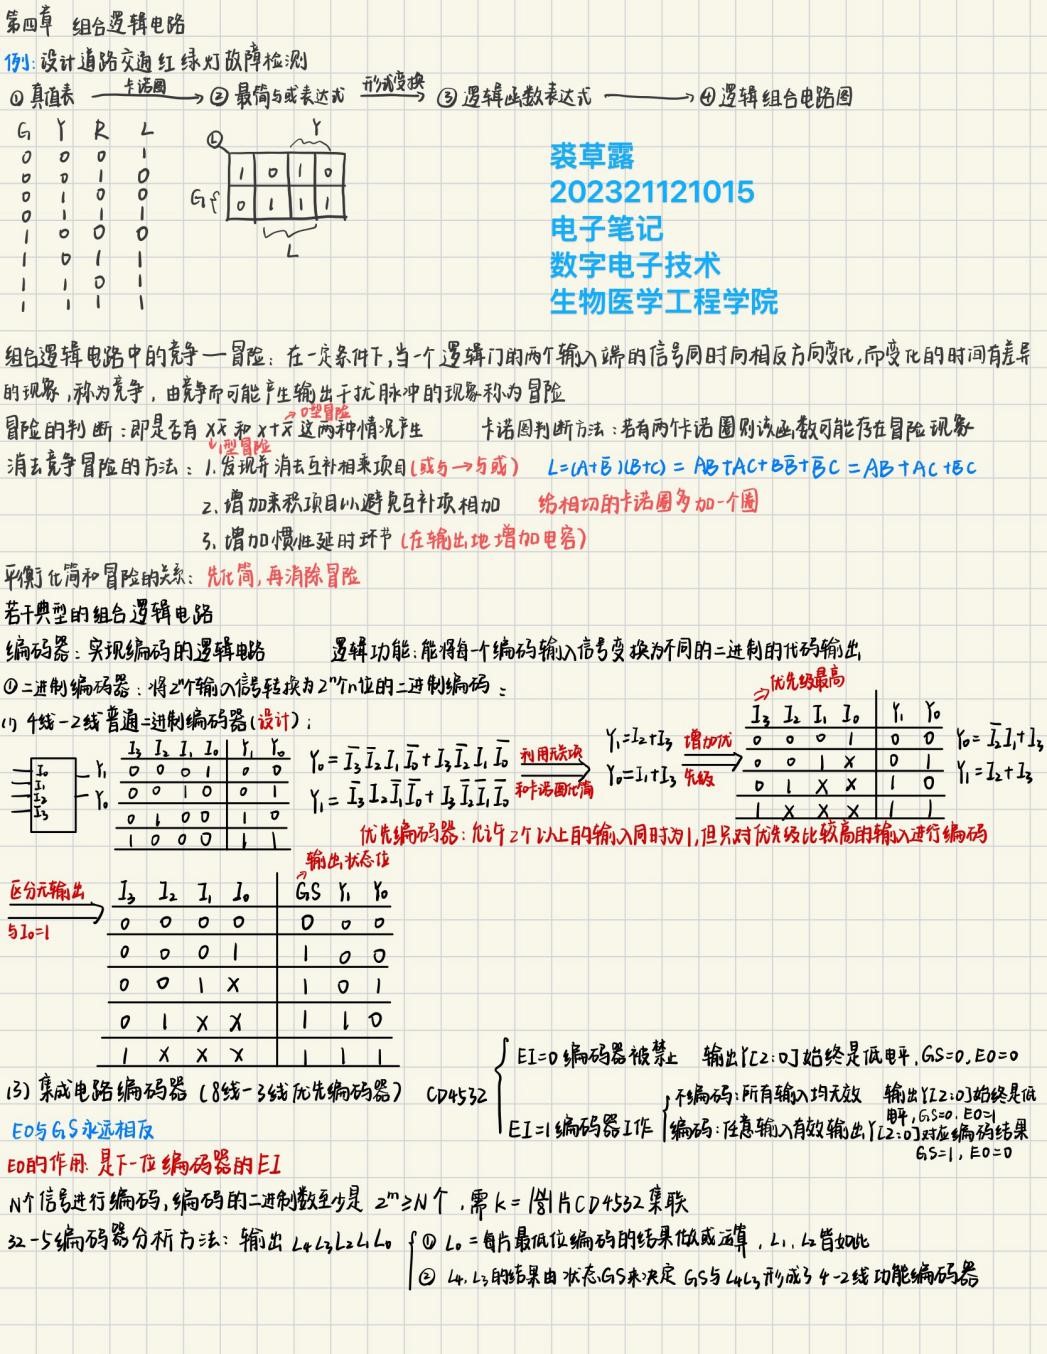 第四章 组合逻辑电路
例: 设计道路交通红绿灯故障检测
① 真值表 —卡诺图→ ② 最简与或表达式 —形式变换→ ③ 逻辑函数表达式 → ④ 逻辑组合电路图
G Y R L
0 0 0 1
0 0 1 0
0 1 0 0
0 1 1 1
1 0 0 0
1 0 1 1
1 1 0 1
1 1 1 1
L Y
1 0 1 0
G 0 1 1 1
L
裘草露
202321121015
电子笔记
数字电子技术
生物医学工程学院
组合逻辑电路中的竞争一冒险: 在一定条件下,当一个逻辑门的两个输入端的信号同时向相反方向变化,而变化的时间有差异
的现象,称为竞争, 由竞争而可能产生输出干扰脉冲的现象称为冒险
→0型冒险
冒险的判断: 即是否有 XX̅ 和 X+X̅ 这两种情况产生 卡诺图判断方法: 若有两个卡诺圈则该函数可能存在冒险现象
↓1型冒险
消去竞争冒险的方法: 1. 发现并消去互补相乘项目(或与→与或) L=(A+B̅)(B+C) = AB+AC+BB̅+B̅C = AB+AC+B̅C
2. 增加乘积项目以避免互补项相加 给相切的卡诺圈多加一个圈
3. 增加惯性延时环节 (在输出地增加电容)
平衡化简和冒险的关系: 先化简,再消除冒险
若干典型的组合逻辑电路
编码器: 实现编码的逻辑电路 逻辑功能: 能将每一个编码输入信号变换为不同的二进制的代码输出
①二进制编码器: 将2ⁿ个输入信号转换为2ⁿ个n位的二进制编码:
(1) 4线-2线普通二进制编码器(设计):
I₀ I₁ I₂ I₃ Y₁ Y₀
I₃ I₂ I₁ I₀ Y₁ Y₀
0 0 0 1 0 0
0 0 1 0 0 1
0 1 0 0 1 0
1 0 0 0 1 1
Y₀ = I̅₃I̅₂I₁I̅₀ + I₃I̅₂I̅₁I̅₀
Y₁ = I̅₃I₂I̅₁I̅₀ + I₃I̅₂I̅₁I̅₀
利用无关项
和卡诺图化简
Y₁=I₂+I₃
Y₀=I₁+I₃
增加优
先级
→优先级最高
I₃ I₂ I₁ I₀ Y₁ Y₀
0 0 0 1 0 0
0 0 1 X 0 1
0 1 X X 1 0
1 X X X 1 1
Y₀=I̅₂I₁+I₃
Y₁=I₂+I₃
优先编码器: 允许2个以上的输入同时为1,但只对优先级比较高的输入进行编码
区分无输出
与I₀=1
→输出状态位
I₃ I₂ I₁ I₀ GS Y₁ Y₀
0 0 0 0 0 0 0
0 0 0 1 1 0 0
0 0 1 X 1 0 1
0 1 X X 1 1 0
1 X X X 1 1 1
(3) 集成电路编码器 (8线-3线优先编码器) CD4532
EI=0 编码器被禁止 输出Y[2:0]始终是低电平, GS=0, EO=0
EI=1 编码器工作
不编码: 所有输入均无效 输出Y[2:0]始终是低
电平, GS=0. EO=1
编码: 任意输入有效输出Y[2:0]对应编码结果
GS=1, EO=0
EO与GS永远相反
EO的作用 是下一位编码器的EI
N个信号进行编码,编码的二进制数至少是 2ᵐ≥N个, 需 k = |N/8| 片CD4532集联
32-5编码器分析方法: 输出 L₄L₃L₂L₁L₀
① L₀ = 每片最低位编码的结果做或运算, L₁, L₂皆如此
② L₄, L₃的结果由状态GS来决定 GS与L₄L₃形成了4-2线功能编码器